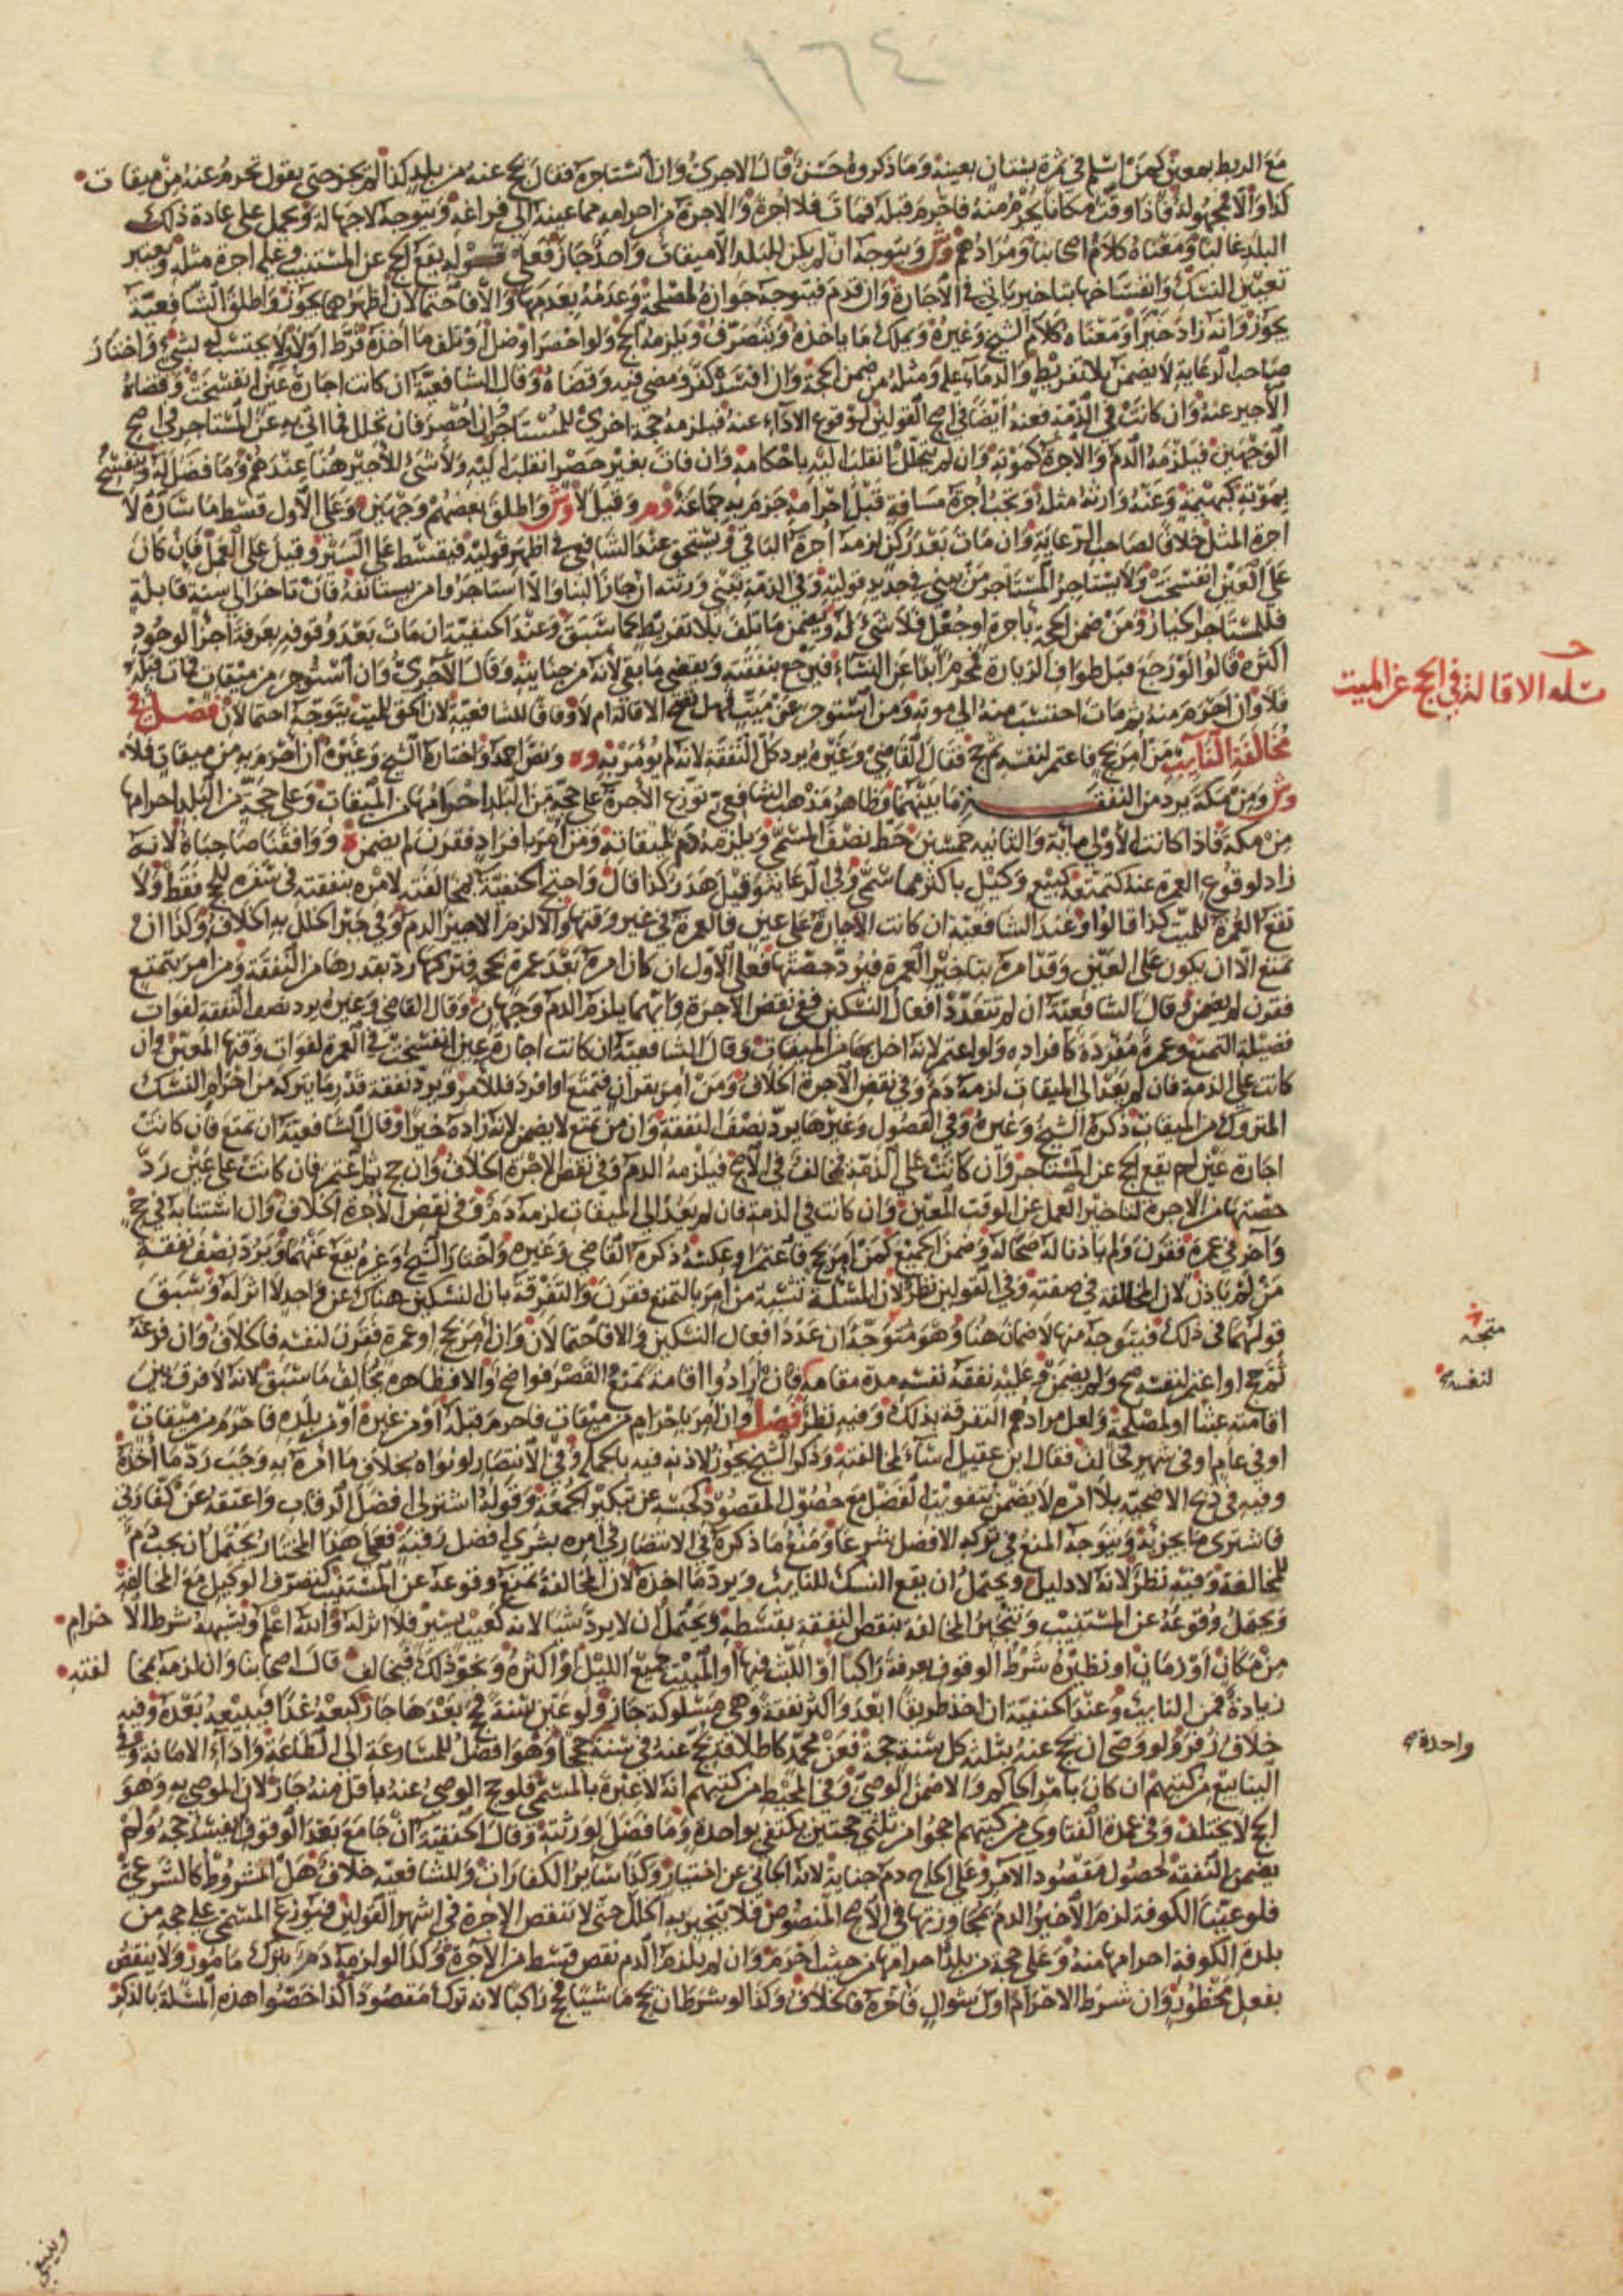 ١٦٤
مع الربط بمعين كمن اسلم في ثمرة بستان بعينه وما ذكروه حسن قال الاجري وان استاجره فقال يحج عنه من بلد كذا لم يجز حتى يقول تحرم عنه من ميقات
كذا والا فمجهولة فاذا وقت مكانا يحرم منه فاحرم قبله فمات فلا اجرة والاجرة من احرامه مما عينه الى فراغه ويتوجه لا جهالة ويحمل على عادة ذلك
البلد غالبا ومعناه كلام اصحابنا ومرادهم وش ويتوجه ان لم يكن للبلد الا ميقات واحد جاز فعلى قوله يقع الحج عن المستنيب وعليه اجرة مثله ويعتبر
تعيين النسك وانفساخها بتاخير ياتي في الاجارة وان قدم فيتوجه جوازه لمصلحة وعدمه بعدمها والا فاحتمالان اظهرهما يجوز واطلق الشافعية
يجوز وانه زاد خيرا ومعناه كلام الشيخ وغيره ويملك ما ياخذه ويتصرف ويلزمه الحج ولو احصر او ضل او تلف ما اخذه فرط اولا ولا يحتسب له بشيء واختار
صاحب الرعاية لا يضمن بلا تفريط والدماء عليه ومثله من ضمن الحجة وان افسده كفر ومضى فيه وقضاه وقال الشافعية ان كانت اجارة عين انفسخت وقضاه
الاجير عنه وان كانت في الذمة فعنه ايضا في اصح القولين لوقوع الاداء عنه فيلزمه حجة اخرى للمستاجر وان احصر فان تحلل فما اتى به عن المستاجر في اصح
الوجهين فيلزمه الدم والاجرة كموته وان لم يتحلل انقلب اليه باحكامه وان فات بغير حصر انقلب اليه ولا شيء للاجير هنا عندهم وما فضل له وتنفسخ
بموته كبهيمة وعنه وارثه مثله وتجب اجرة مسافة قبل احرامه جزم به جماعة وم ر وقيل لا وش واطلق بعضهم وجهين وعلى الاول قسط ما ساره لا
اجرة المثل خلافا لصاحب الرعاية وان مات بعد ركن لزمه اجرة الباقي ويستحق عند الشافعي في اظهر قوليه فيقسط على السير وقيل على العمل فان كان
على العين انفسخت ولا يستاجر المستاجر من يبني في جديد قوليه وفي الذمة يبني ورثته ان جاز البنا والا استاجروا من يستانفه فان تاخر الى سنة قابلة
فللمستاجر الخيار ومن ضمن الحجة باجرة او جعل فلا شيء له ويضمن ما تلف بلا تفريط كما سبق وعند الحنفية ان مات بعد وقوفه بعرفة اجزا لوجود
اكثره قالوا ولو رجع قبل طواف الزيارة فمحرم ابدا عن النساء فيرجع بنفقته ويقضي ما بقي لانه من جنايته وقال الاجري وان استؤجر من ميقات فمات قبله
فلا وان احرم منه ثم مات احتسب منه الى موته ومن استؤجر عن ميت فهل تصح الاقالة ام لا وفاقا للشافعية لان الحق للميت يتوجه احتمالان فصل في
مخالفة النائب من امر بحج فاعتمر لنفسه ثم حج فقال القاضي وغيره يرد كل النفقة لانه لم يؤمر به وه ونص احمد واختاره الشيخ وغيره ان احرم به من ميقات فلا
وش ومن مكة يرد من النفقة ما بينهما وظاهر مذهب الشافعي توزع الاجرة على حجة من البلد احرامها من الميقات وعلى حجة من البلد احرامها
من مكة فاذا كانت الاولى ماية والثانية خمسين حط نصف المسمى ويلزمه دم لميقاته ومن امر بافراد فقرن لم يضمن ه ووافقنا صاحباه لانه
زاد لوقوع العمرة عنه كتمتعه كبيع وكيل باكثر مما سمي وفي الرعاية وقيل هدر كذا قال واحتج الحنفية لمخالفته لامره بنفقته في سفره للحج فقط ولا
تقع العمرة للميت كذا قالوا وعند الشافعية ان كانت الاجارة على عين فالعمرة في غير وقتها والا لزم الاجير الدم وفي جبر الخلل به الخلاف وكذا ان
تمتع الا ان يكون على العين وقد امره بتاخير العمرة فيرد حصتها فعلى الاول ان كان امره بعد عمرة بحجه فتركها رد بقدرها من النفقة ومن امر بتمتع
فقرن لم يضمن وقال الشافعية ان لم تتعدد افعال النسكين ففي نقص الاجرة وايهما يلزمه الدم وجهان وقال القاضي وغيره يرد نصف النفقة لفوات
فضيلة التمتع وعمرة مفردة كافراده ولو اعتمر لانه اخل بها من الميقات وقال الشافعية ان كانت اجارة عين انفسخت في العمرة لفوات وقتها المعين وان
كانت على الذمة فان لم يعد الى الميقات لزمه دم وفي نقص الاجرة الخلاف ومن امر بقران فتمتع او افرد فللامر ويرد نفقة قدر ما يتركه من احرام النسك
المتروك من الميقات ذكره الشيخ وغيره وفي الفصول وغيرها يرد نصف النفقة وان من تمتع لا يضمن لانه زاده خيرا وقال الشافعية ان تمتع فان كانت
اجارة عين لم يقع الحج عن المستاجر وان كانت على الذمة فمخالف في الاصح فيلزمه الدم وفي نقص الاجرة الخلاف وان حج ثم اعتمر فان كانت على عين رد
حصتها من الاجرة لتاخير العمل عن الوقت المعين وان كانت في الذمة فان لم يعد الى الميقات لزمه دم وفي نقص الاجرة الخلاف وان استنابه في حج
واخر في عمرة فقرن ولم ياذنا له صحا له وضمن الجميع كمن امر بحج فاعتمر او عكسه ذكره القاضي وغيره واختار الشيخ وغيره يقع عنهما ويرد نصف نفقة
من لم ياذن لان المخالفة في صفته وفي القولين نظر لان المسئلة تشبه من امر بالتمتع فقرن والتفرقة بان النسكين هناك عن واحد لا اثر له وسبق
قولهما في ذلك فيتوجه منها لا ضمان هنا وهو متوجه ان عددا افعال النسكين والا فاحتمالان وان امر بحج او عمرة فقرن لنفسه فالخلاف وان فرغه
ثم حج او اعتمر لنفسه صح ولم يضمن وعليه نفقة نفسه مدة مقامه فان ارادوا اقامة تمنع القصر فواضح والا فظاهره يخالف ما سبق لانه لا فرق بين
اقامته عبثا او لمصلحة ولعل مرادهم التفرقة بذلك وفيه نظر فصل وان امر باحرام من ميقات فاحرم قبله او من غيره او من بلده فاحرم من ميقات
او في عام او في شهر فخالف فقال ابن عقيل اساء لمخالفته وذكر الشيخ يجوز لاذنه فيه بالجملة وفي الانتصار لو نواه بخلاف ما امره به وجب رد ما اخذه
وفيه في ذبح الاضحية بلا امره لا يضمن بتفويت الفضل مع حصول المقصود كحبسه عن تبكير الجمعة وقوله اشتر لي افضل الرقاب واعتقه عن كفارتي
فاشترى ما يجزئه ويتوجه المنع في تركه الافضل شرعا ومنع ما ذكره في الانتصار في امره بشرى افضل رقبة فعلى هذا المختار يحتمل ان يجب دم
لمخالفة وفيه نظر لانه لا دليل ويحتمل ان يقع النسك للنايب ويرد ما اخذه لان المخالفة تمنع وقوعه عن المستنيب كتصرف الوكيل مع المخالفة
ويحتمل وقوعه عن المستنيب وتنجبر المخالفة بنقص النفقة بقسطه ويحتمل ان لا يرد شيئا لانه كعيب يسير فلا اثر له والله اعلم ويشبهه شرط الاحرام
من مكان او زمان او نظيره شرط الوقوف بعرفة راكبا او اللبث فيها او المبيت جميع الليل او اكثره ونحو ذلك فيخالف قال اصحابنا وان لزمه بمخالفته
زيادة فمن النايب وعند الحنفية ان اخذ طريقا ابعد واكثر نفقة وهي مسلوكة جاز ولو عين سنة فحج بعدها جاز كبعه غدا فيبيعه بعده وفيه
خلاف زفر ولو وصى ان يحج عنه بثلثه كل سنة حجة فعن محمد كاطلاقه يحج عنه في سنة حججا وهو افضل للمسارعة الى الطاعة واداء الامانة وفي
الينابيع من كتبهم ان كان بامر الحاكم والا ضمن الوصي وفي المحيط من كتبهم انه لا عبرة بالمسمى فلو حج الوصي عنه باقل منه جاز لان الموصى به وهو
الحج لا يختلف وفي عمدة الفتاوي من كتبهم احجوا من ثلثي حجتين يكتفى بواحدة وما فضل لورثته وقال الحنفية ان جامع بعد الوقوف لم يفسد حجه ولم
يضمن النفقة لحصول مقصود الامر وعلى الحاج دم جناية لانه الجاني عن اختيار وكذا ساير الكفارات وللشافعية خلاف هل المشروط كالشرعي
فلو عينا الكوفة لزم الاجير الدم بمجاوزتها في الاصح المنصوص فلا ينجبر به الخلل حتى لا تنقص الاجرة في اشهر القولين فتوزع المسمى على حجة من
بلدة الكوفة احرامها منه وعلى حجة من بلد احرامها من حيث احرم وان لم يلزم الدم نقص قسط من الاجرة وكذا لو لزمه دم بترك مامور ولا ينقص
بفعل محظور وان شرط الاحرام اول شوال فاخره فالخلاف وكذا لو شرط ان يحج ماشيا فحج راكبا لانه ترك مقصودا كذا خصوا هذه المسئلة بالذكر
مسئلة الاقالة في الحج عن الميت
متجه
لنفسه
واحدة
وينبغي